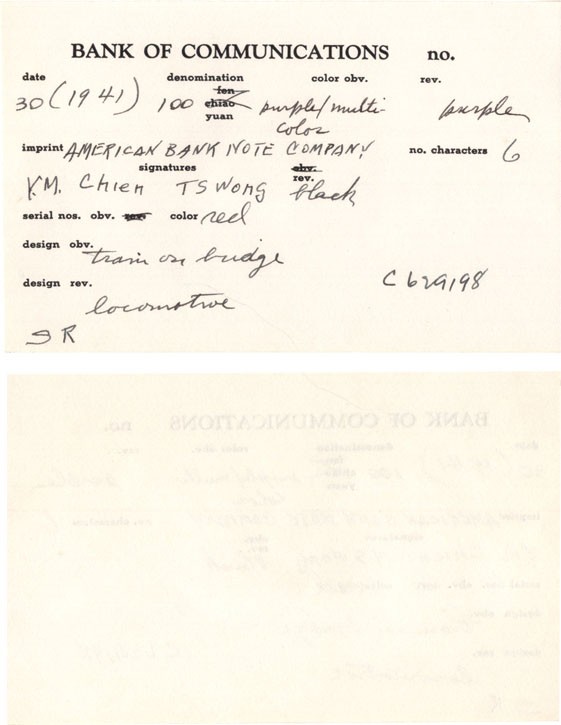 BANK OF COMMUNICATIONS no.
date denomination color obv. rev.
30 (1941) 100 fen chiao yuan purple/multi-color purple
imprint AMERICAN BANK NOTE COMPANY no. characters 6
signatures obv. rev.
K.M. Chien TS Wong black
serial nos. obv. rev. color red
design obv.
train on bridge
C629198
design rev.
locomotive
SR